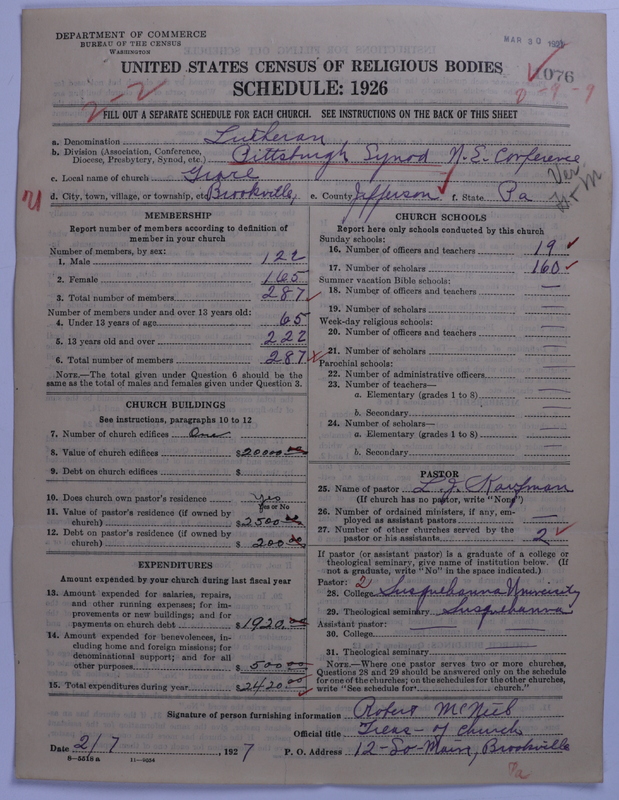 DEPARTMENT OF COMMERCE
BUREAU OF THE CENSUS
WASHINGTON
MAR 30 1927
UNITED STATES CENSUS OF RELIGIOUS BODIES
SCHEDULE: 1926
1076
2-2
FILL OUT A SEPARATE SCHEDULE FOR EACH CHURCH. SEE INSTRUCTIONS ON THE BACK OF THIS SHEET
a. Denomination Lutheran
b. Division (Association, Conference, Diocese, Presbytery, Synod, etc.) Pittsburgh Synod N. E. Conference
c. Local name of church Grace
d. City, town, village, or township, etc. Brookville, e. County Jefferson f. State Pa
MEMBERSHIP
Report number of members according to definition of
member in your church
Number of members, by sex:
1. Male 122
2. Female 165
3. Total number of members 287
Number of members under and over 13 years old:
4. Under 13 years of age 65
5. 13 years old and over 222
6. Total number of members 287
NOTE.—The total given under Question 6 should be
same as the total of males and females given under Question 3.
CHURCH BUILDINGS
See instructions, paragraphs 10 to 12
7. Number of church edifices One
8. Value of church edifices $20000.00
9. Debt on church edifices $
10. Does church own pastor's residence Yes
Yes or No
11. Value of pastor's residence (if owned by
church) $2500.00
12. Debt on pastor's residence (if owned by
church) $200.00
EXPENDITURES
Amount expended by your church during last fiscal year
13. Amount expended for salaries, repairs,
and other running expenses; for im-
provements or new buildings; and for
payments on church debt $1920.00
14. Amount expended for benevolences, in-
cluding home and foreign missions; for
denominational support; and for all
other purposes $500.00
15. Total expenditures during year $2420.00
CHURCH SCHOOLS
Report here only schools conducted by this church
Sunday schools:
16. Number of officers and teachers 19
17. Number of scholars 160
Summer vacation Bible schools:
18. Number of officers and teachers —
19. Number of scholars —
Week-day religious schools:
20. Number of officers and teachers —
21. Number of scholars —
Parochial schools:
22. Number of administrative officers —
23. Number of teachers—
a. Elementary (grades 1 to 8) —
b. Secondary —
24. Number of scholars—
a. Elementary (grades 1 to 8) —
b. Secondary —
PASTOR
25. Name of pastor L. J. Kaufman
(If church has no pastor, write "None")
26. Number of ordained ministers, if any, em-
ployed as assistant pastors —
27. Number of other churches served by the
pastor or his assistants 2
If pastor (or assistant pastor) is a graduate of a college or
theological seminary, give name of institution below. (If
not a graduate, write "No" in the space indicated.)
Pastor: 2
28. College Susquehanna University
29. Theological seminary Susquehanna
Assistant pastor:
30. College
31. Theological seminary
NOTE.—Where one pastor serves two or more churches,
Questions 28 and 29 should be answered only on the schedule
for one of the churches; on the schedules for the other churches,
write "See schedule for church."
Signature of person furnishing information Robert McNeil
Official title Treas - of church
Date 2/7, 1927 P. O. Address 12-So-Main, Brookville
Pa
8—5518 a 11—9254